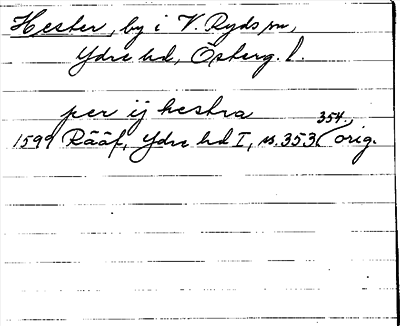 Hester, by i V. Ryds sn,
Ydre hd, Österg. l.
per ij hestra
354.,
1599 Rääf, Ydre hd I, s. 353. orig.